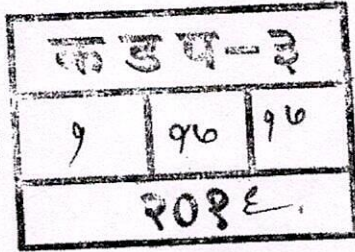 कडप-३
१ १७ १७
२०१६.